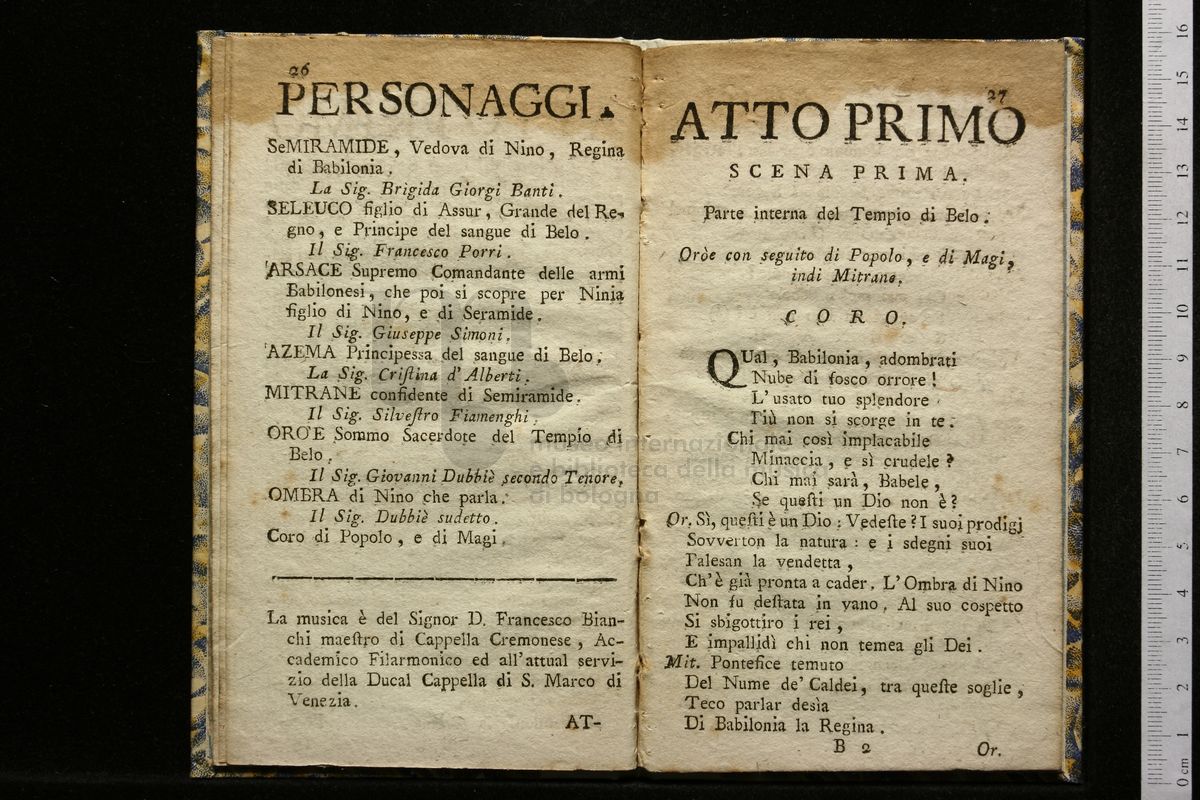 26
PERSONAGGI.
SeMIRAMIDE, Vedova di Nino, Regina
di Babilonia.
La Sig. Brigida Giorgi Banti.
SELEUCO figlio di Assur, Grande del Re-
gno, e Principe del sangue di Belo.
Il Sig. Francesco Porri.
ARSACE Supremo Comandante delle armi
Babilonesi, che poi si scopre per Ninia
figlio di Nino, e di Seramide.
Il Sig. Giuseppe Simoni.
AZEMA Principessa del sangue di Belo.
La Sig. Cristina d'Alberti.
MITRANE confidente di Semiramide.
Il Sig. Silvestro Fiamenghi.
OROE Sommo Sacerdote del Tempio di
Belo.
Il Sig. Giovanni Dubbiè secondo Tenore.
OMBRA di Nino che parla.
Il Sig. Dubbiè sudetto.
Coro di Popolo, e di Magi.
La musica è del Signor D. Francesco Bian-
chi maestro di Cappella Cremonese, Ac-
cademico Filarmonico ed all'attual servi-
zio della Ducal Cappella di S. Marco di
Venezia.
AT-
27
ATTO PRIMO
SCENA PRIMA.
Parte interna del Tempio di Belo.
Oròe con seguito di Popolo, e di Magi,
indi Mitrane.
CORO.
QUal, Babilonia, adombrati
Nube di fosco orrore!
L'usato tuo splendore
Più non si scorge in te.
Chi mai così implacabile
Minaccia, e sì crudele?
Chi mai sarà, Babele,
Se questi un Dio non è?
Or. Sì, questi è un Dio: Vedeste? I suoi prodigj
Sovverton la natura: e i sdegni suoi
Palesan la vendetta,
Ch'è già pronta a cader. L'Ombra di Nino
Non fu destata in vano. Al suo cospetto
Si sbigottiro i rei,
E impallidì chi non temea gli Dei.
Mit. Pontefice temuto
Del Nume de' Caldei, tra queste soglie,
Teco parlar desìa
Di Babilonia la Regina.
B 2
Or.
museo internazionale
e biblioteca della musica
di bologna
0 cm 1 2 3 4 5 6 7 8 9 10 11 12 13 14 15 16